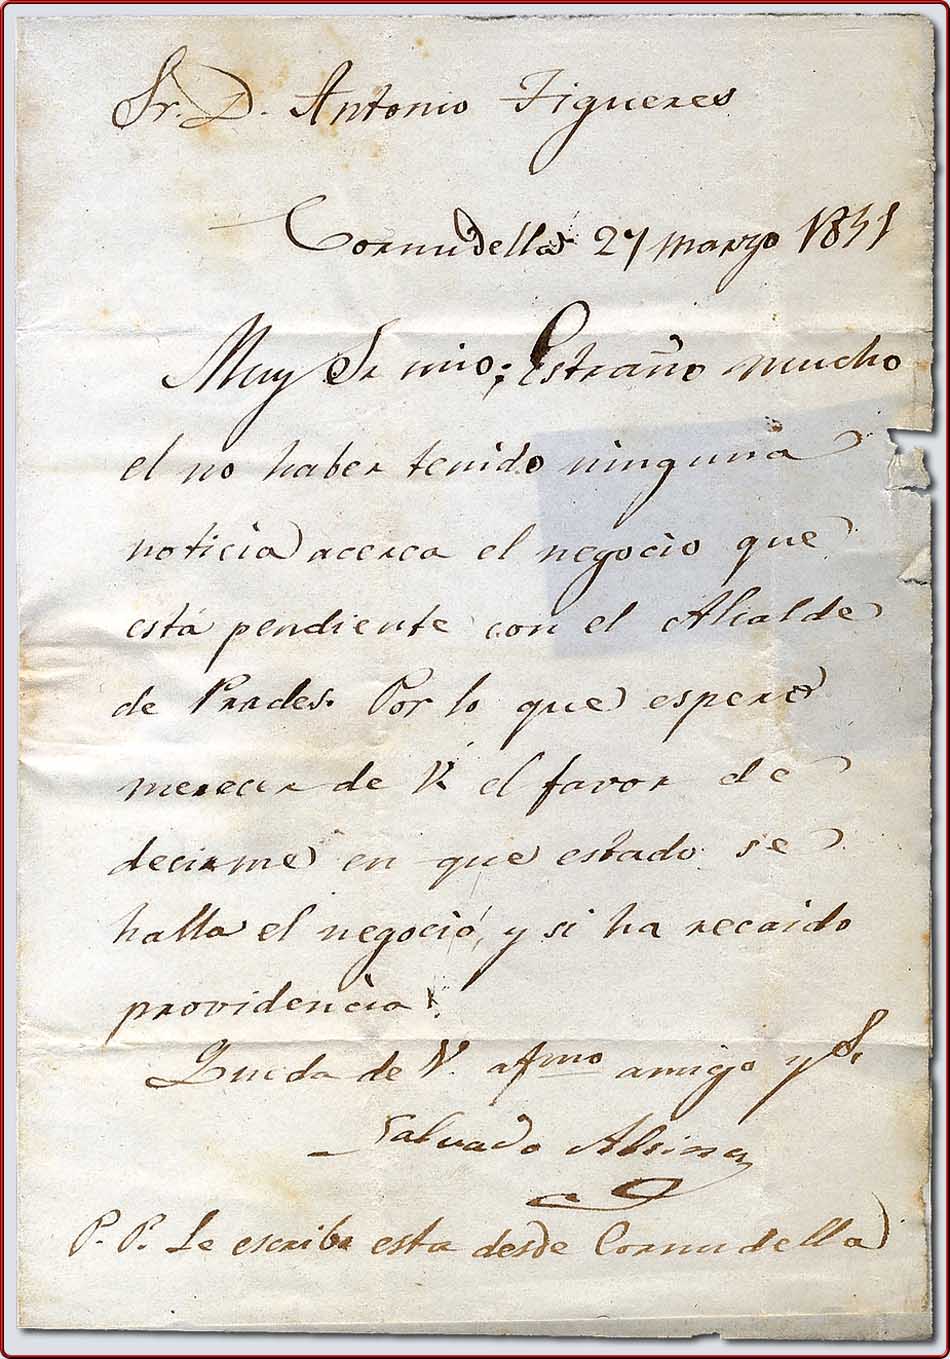 Sr. D. Antonio Figueres
Cornudella 27 marzo 1851
Muy Sr mio; Estraño mucho
el no haber tenido ninguna
noticia acerca el negocio que
está pendiente con el Alcalde
de Prades. Por lo que espero
merecer de V. el favor de
decirme en que estado se
halla el negocio, y si ha recaido
providencia.
Queda de V. afmo amigo y S.
Salvado Alsina
P. P. Le escribo esta desde Cornudella